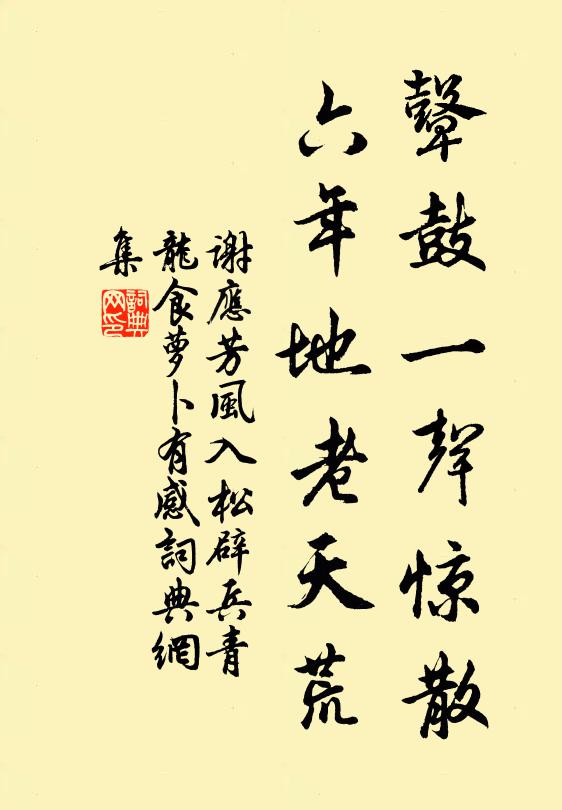 鼙鼓一聲惊散
六年地老天荒
謝應芳風入松辟兵青
龍食萝卜有感詞典網
集
詞典网印